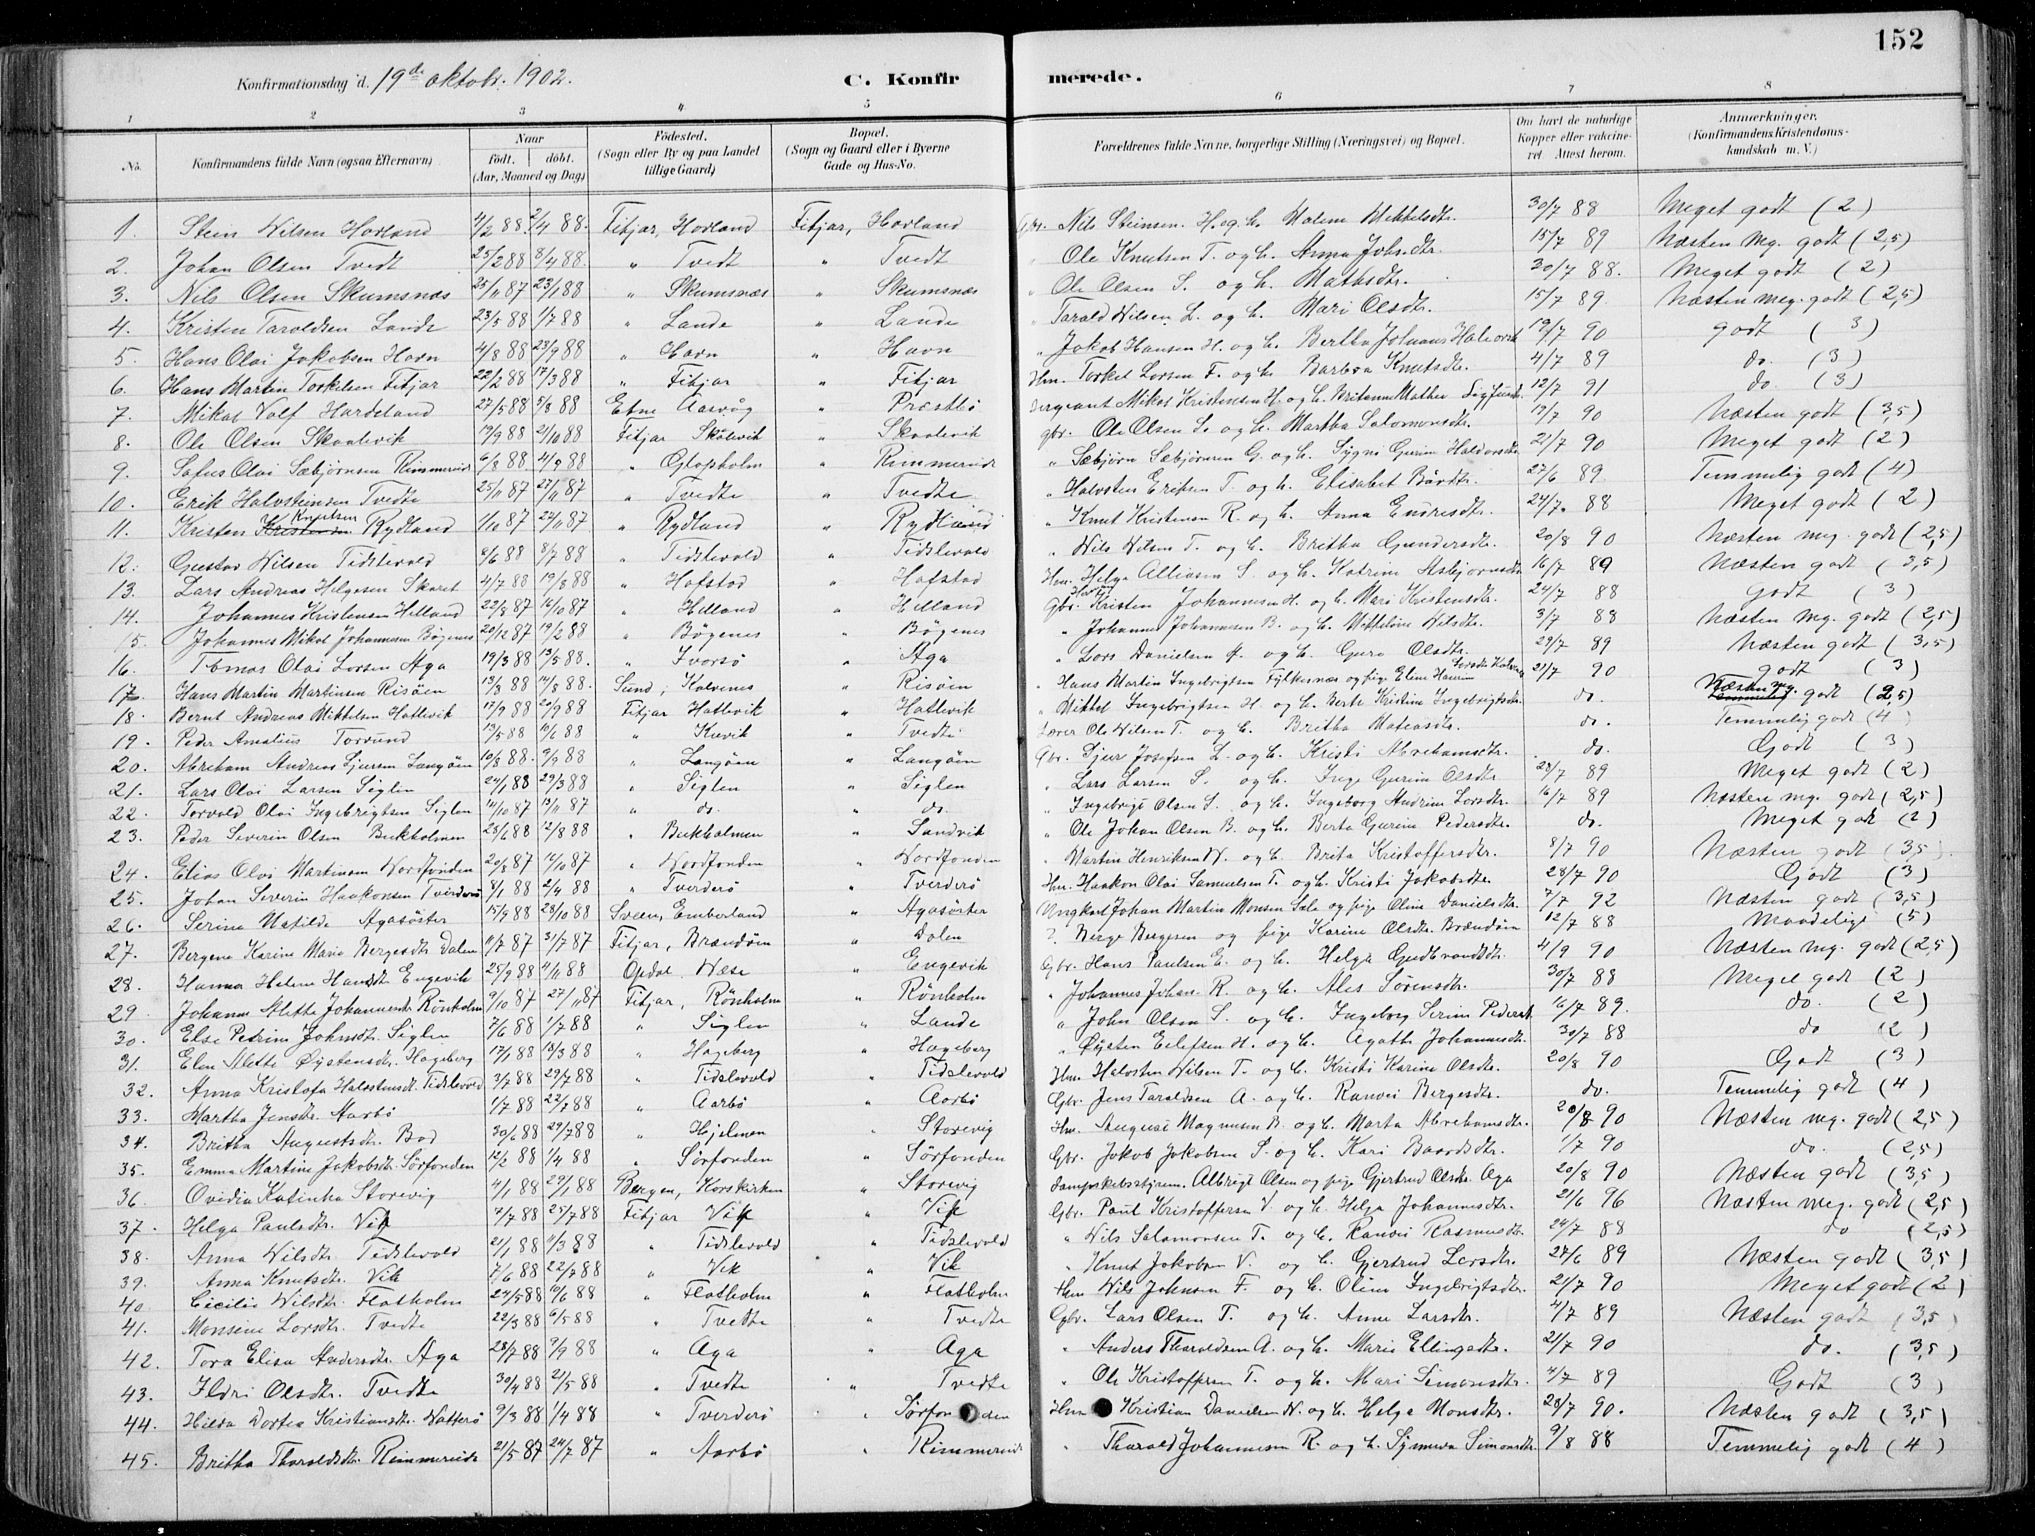 152
Konfirmationsdag d. 19de oktobr. 1902.
C. Konfirmerede.
1 2 3 4 5 6 7 8
No. Konfirmandens fulde Navn (ogsaa Efternavn) Naar født. døbt. (Aar, Maaned og Dag) Fødested. (Sogn eller By og paa Landet tillige Gaard) Bopæl. (Sogn og Gaard eller i Byerne Gade og Hus-No. Forældrenes fulde Navne, borgerlige Stilling (Næringsvei) og Bopæl. Om havt de naturlige Kopper eller vaccineret Attest herom. Anmerkninger. (Konfirmandens Kristendomskundskab m. V.)
1. Sten Nilsen Hovland 4/2 88 2/4 88. Fitjar, Hovland Fitjar, Hovland Gbr. Nils Steinsen H. og h. Malene Mikkelsdtr. 30/7 88 Meget godt (2)
2. Johan Olsen Tvedt 25/2 88 8/4 88. " Tvedt " Tvedt " Ole Knutsen T. og h. Anna Johs.dtr. 15/7 89 Næsten mg. godt (2,5)
3. Nils Olsen Skumsnæs 25/11 87 23/1 88 " Skumsnæs " Skumsnæs " Ole Olsen S. og h. 30/7 88. Meget godt (2)
4. Kristen Taroldsen Lande 23/5 88 1/7 88 " Lande " Lande " Tarald Nilsen L. og h. Mari Olsdtr. 15/7 89 Næsten meg. godt (2,5)
5. Hans Olai Jakobsen Havn 4/8 88 23/9 88 " Havn " Havn " Jakob Hansen H. og h. Bertha Johanna 19/7 90 godt (3)
6. Hans Martin Torkelsen Fitjar 22/2 88 17/3 88 " Fitjar " Fitjar Hm. Torkel Larsen F. og h. Barbra Knutsdtr. 4/7 89 do. (3)
7. Mikal Valf Hardeland 27/5 88 5/8 88 Etne Aasvåg " Præstbø Sergeant Mikal Kristensen H. og h. 12/7 91 do. (3)
8. Ole Olsen Skaalevik 19/9 88 21/10 88 Fitjar Skålevik " Skaalevik gbr. Ole Olsen S. og h. Martha Salomonsdtr. 19/7 90 Næsten godt (3,5)
9. Sofus Olai Sæbjørnsen Rimmereide 6/8 88 4/9 88 " Gloppholm " Rimmereide " Sæbjørn Sæbjørnsen G. og h. Sygni Gurine Haldorsdtr. 21/7 90 Meget godt (2)
10. Erik Halvsteinsen Tvedte 25/11 87 27/11 87 " Tvedte " Tvedte " Halvsten Eriksen T. og h. Elisabet Bårdtr. 27/6 89 Temmelig godt (4)
11. Kristen Knutsen Rydland 1/10 87 24/11 87 " Rydland " Rydland " Knut Kristensen R. og h. Anna Endresdtr. 24/7. 88 Meget godt (2)
12. Gustav Nilsen Tidslevold 6/6 88 8/7 88 " Tidslevold " Tidslevold " Nils Nilsen T. og h. Britha Gundersdtr. 20/8 90 Næsten mg. godt (2,5)
13. Lars Andreas Helgesen Skaret 4/7 88 19/8 88 " Hofstad " Hafstad Hm. Helge Alliasen S. og h. Katrine Asbjørnsdtr. 16/7 89 Næsten godt (3,5)
14. Johannes Kristensen Helland 22/9 87 16/10 87 " Helland " Helland Gbr. Kristen Johannesen H. og h. Mari Kristensdtr. 24/7 88 Godt (3)
15. Johannes Mikal Johannesen Bøgenes 20/12 87 19/2 88 " Bøgenes " Bøgenes " Johannes Johannesen B. og h. Nilsdtr. 3/7 88 Næsten mg. godt (2,5)
16. Tomas Olai Larsen Aga 19/3 88 13/5 88. " Ivarsø " Aga " Lars Danielsen A. og h. Guro Olsdtr. 29/7 89 Næsten godt (3,5)
17. Hans Martin Martinsen Risøen 13/3 88 14/8 88. Sund, Kalvenes " Risøen " Hans Martin Ingebrigtsen Fylkesnæs og pige Eline Larsdtr. 21/7 90 godt (3)
18. Bernt Andreas Mikkelsen Hatlevik 17/9 88 20/9 88 Fitjar Hatlevik " Hatlevik " Mikkel Ingebrigtsen H. og h. Berte Kristine Ingebrigtsdtr. do. Næsten mg. godt (2,5)
19. Peder Amalius Torsund 13/5 88 10/6 88 " " Tvedte Lærer Ole Nilsen T. og h. Britha Mateasdtr. do. Temmelig godt (4)
20. Abraham Andreas Sjursen Langøen 10/8 88. 9/9 88 " Langøen " Langøen Gbr. Sjur Josefsen L. og h. Kristi Abrahamsdtr. do. Godt (3)
21. Lars Olai Larsen Siglen 24/1 88 29/3 88 " Siglen " Siglen " Lars Larsen S. og h. Inge Gurine Olsdtr. 23/7 89 Meget godt (2)
22. Torvald Olai Ingebrigtsen Siglen 14/10 87 13/11 87 " do. " do. " Ingebrigt Olsen S. og h. Ingeborg Andrine Larsdtr. 16/7 89 Næsten mg. godt (2,5)
23. Peder Severin Olsen Bukholmen 23/6 88 12/8 88 " Bukholmen " Sandvik " Ole Johan Olsen B. og h. Berta Gurine Pedersdtr. do. Meget godt (2)
24. Elias Olai Martinsen Nordfonden 20/8 87 14/10 87 " Nordfonden " Nordfonden " Martin Henriksen N. og h. Brita Kristoffersdtr. 8/7 90 Næsten godt (3,5).
25. Johan Severin Haakonsen Tverderø 8/1 88 2/4 88 " Tverderø " Tverderø Hm. Haakon Olai Samuelsen T. og h. Kristi Jakobsdtr. 28/7 90 Godt (3)
26. Serine Matilde Agasøster 15/9 88 28/10 88 Sveen, Emberland " Agasøster Ungkarl Johan Martin Monsen Sele og pige Oline Danielsdtr. 7/7 92 Næsten godt (3,5)
27. Bergene Karine Marie Bergesdtr. Dalen 11/7 87 31/7 87 Fitjar, Brandøen " Dalen ?. Berge Bergesen og pige Karine Olsdtr. Brandøen 12/7 88 Maadelig (5)
28. Hanna Helene Hansdtr. Engevik 25/9 88 4/11 88 Opdal Næse " Engevik Gbr. Hans Paulsen E. og h. Helga Gudbrandsdtr. 4/9 90 Næsten mg. godt (2,5)
29. Johanne Alette Johannesdtr. Rönholm 9/10 87 27/11 87 Fitjar, Rönholm " Rönholm " Johannes Johan. R. og h. Ales Sørensdtr. 30/7 88 Meget godt (2)
30. Else Petrine Johnsdtr. Siglen 7/6 88 1/7 88 " Siglen " Lande " John Olsen S. og h. Ingeborg Serine Pedersdt. 16/7 89. do. (2)
31. Elen Alette Øystensdtr. Hageberg 17/1 88 18/3 88 " Hageberg " Hageberg " Øysten Eilefsen H. og h. Agathe Johannesdtr. 30/7 88 do (2)
32. Anna Kristofa Halvstensdt. Tidslevold 3/7 88 29/7 88 " Tidslevold " Tidslevold Hm. Halvsten Nilsen T. og h. Kristi Karine Olsdtr. 20/8 90 Godt (3)
33. Martha Jensdtr. Aarbø 1/7 88 22/7 88 " Aarbø " Aarbø Gbr. Jens Taraldsen A. og h. Ranvei Bergesdtr. do. Temmelig godt (4)
34. Britha Augustsdtr. Bod 30/6 88 29/7 88 " Hjelmen " Storevig Hm. August Magnusen B. og h. Marta Abrahamsdtr. 20/8 90 Næsten mg. godt (2,5)
35. Emma Martine Jakobsdtr. Sørfonden 12/2 88 1/4 88 " Sørfonden " Sørfonden Gbr. Jakob Jakobsen S. og h. Kari Baardsdtr. 1/7 90 do. (2,5)
36. Ovidia Katinka Storevig 4/1 88 29/1 88 Bergen, Korskirken " Storevig Dampskibsstyrem. Albrigt Olsen og pige Gjertrud Olsdtr. Aga 20/8 90 Næsten godt (3,5)
37. Helga Paulsdtr. Vik 7/7 88 25/7 88 Fitjar Vik " Vik Gbr. Paul Kristoffersen V. og h. Helga Johannesdtr. 21/6 96 Næsten meg. godt (2,5)
38. Anna Nilsdtr. Tidslevold 21/1 88 11/3 88 " Tidslevold " Tidslevold " Nils Salomonsen T. og h. Ranvei Rasmusdtr. 24/7 88 do (2,5)
39. Anna Knutsdtr. Vik 7/6 88 22/7 88 " Vik " Vik " Knut Jakobsen V. og h. Gjertrud Larsdtr. 27/6 89 Næsten godt (3,5)
40. Cicilie Nilsdtr. Flatholm 24/5 88 9/6 88 " Flatholm " Flatholm Hm Nils Johnsen F. og h. Oline Ingebrigtsdtr. 21/7 90 Meget godt (2)
41. Monsine Larsdtr. Tvedte 22/3 88 6/5 88 " Tvedte " Tvedte Gbr. Lars Olsen T. og h. Anne Larsdtr. 4/7 89 Næsten godt (3,5)
42. Tora Elisa Andersdtr. Aga 28/7 88 9/9 88 " Aga " Aga " Anders Tharaldsen A. og h. Marie Ellingsdtr. 21/7 90 do. (3,5)
43. Ildri Olsdtr. Tvedte 30/4 88 21/5 88 " Tvedte " Tvedte " Ole Kristoffersen T. og h. Mari Simonsdtr. 4/7 89 Godt (3)
44. Hilda Dortea Kristiansdtr. Natterø 9/3 88 1/4 88 " Tverderø " Sørfonden Hm Kristian Danielsen N. og h. Helga Monsdtr. 28/7 90. Næsten godt (3,5)
45. Britha Tharaldsdtr. Rimmereide 21/5 87 24/7 87 " Aarbø " Rimmereide " Tharald Johannesen R. og h. Synneva Simonsdtr. 9/8 88 Temmelig godt (4)